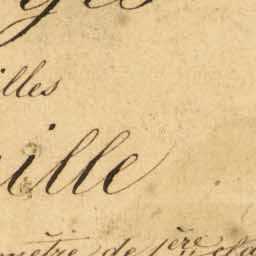 ges
illes
ille
mètre de 1ère cla